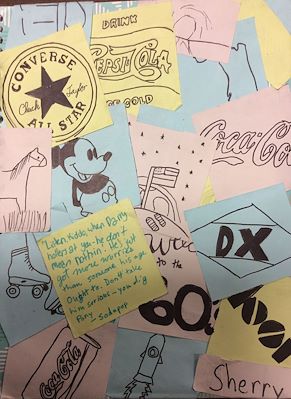 DRINK
PEPSI-COLA
ICE COLD
CONVERSE
Chuck Taylor
ALL STAR
Coca-Cola
"Listen, kiddo, when Darry
hollers at you- he don't
mean nothin'. He's just
got more worries
than someone his age
ought to. Don't take
him serious - you dig
Pony - Sodapop
to the
60
DX
Coca-Cola
Sherry